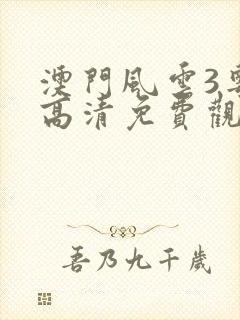 澳門風雲3粵
高清免費觀
吾乃九千歲